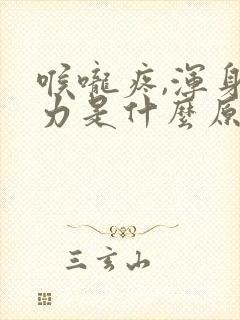 喉嚨疼,渾身
力是什麼原
三玄山